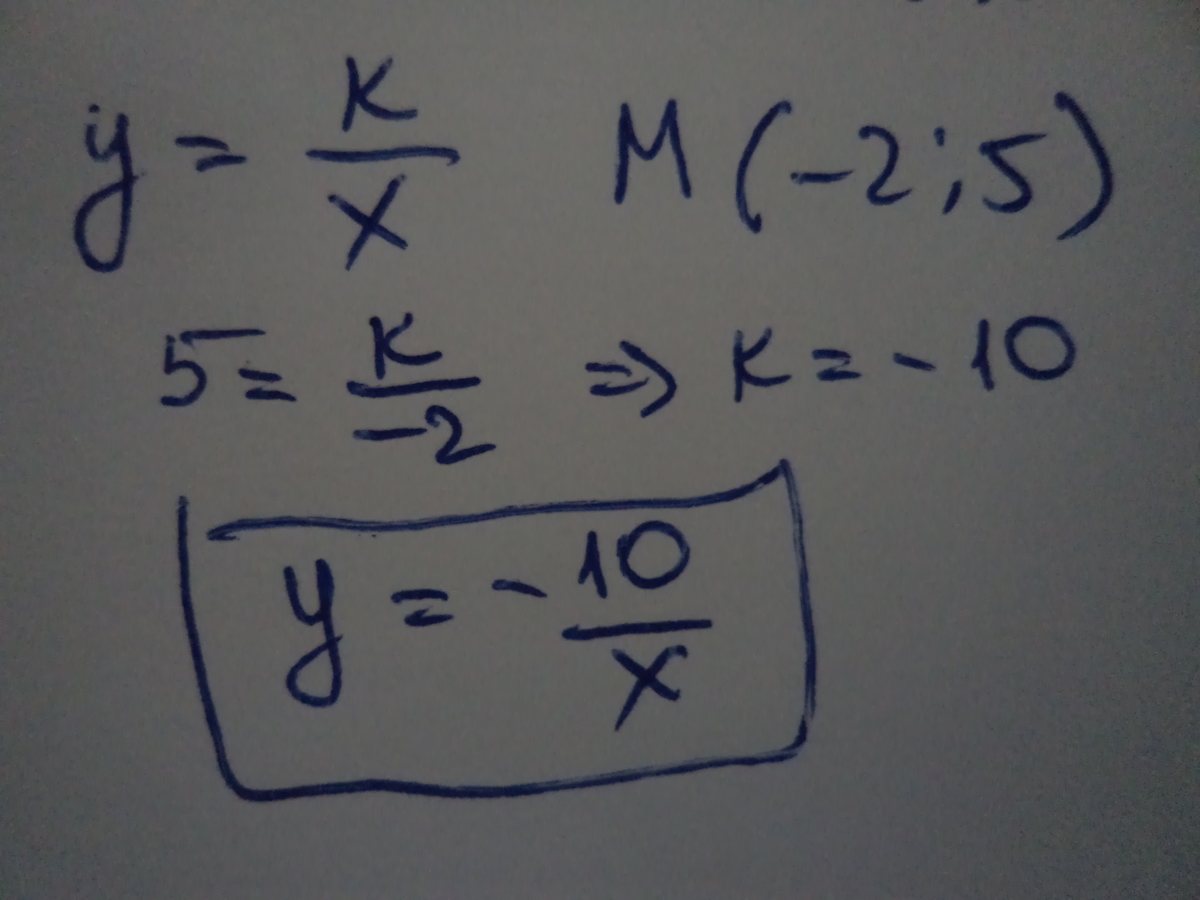 y = K/X M(-2;5)
5 = K/-2 => K = -10
y = -10/X